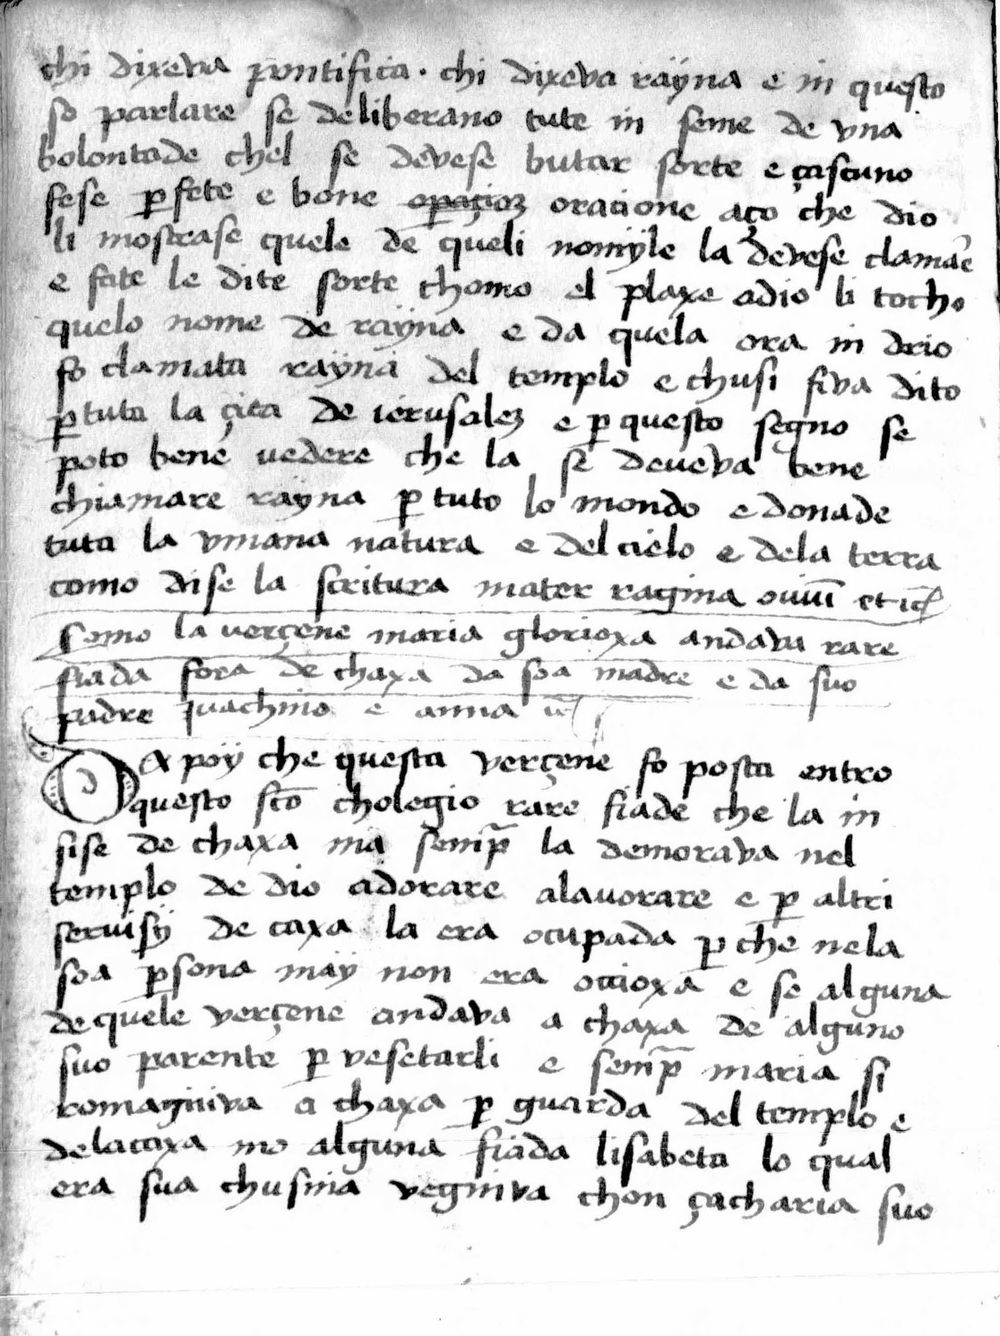 chi dixeva pontifica · chi dixeva raÿna e in questo
so parlare se deliberano tute in seme de vna
bolontade chel se devese butar sorte e çascuno
fese ꝑfete e bone oꝑaçioꝫ oracione aço che dio
li mostrase quele de queli nomÿle la devese clamar̄
e fate le dite sorte chomo el plaxe adio li tocho
quelo nome de raÿna e da quela ora in drio
fo clamata raÿna del templo e chusi fiva dito
ꝑ tuta la çita de ierusaleꝫ e ꝑ questo segno se
poto bene vedere che la se deveva bene
chiamare raÿna ꝑ tuto lo mondo e dona de
tuta la vmana natura e del cielo e dela terra
como dise la scritura mater ragina
Como la verçene maria glorioxa andava rare
fiada fora de chaxa da soa madre e da suo
padre ivachino e anna
Da poÿ che questa verçene fo posta entro
questo sc̄o cholegio rare fiade che la in
sise de chaxa ma semp̄ la demorava nel
templo de dio adorare alavorare e ꝑ altri
servisÿ de caxa la era ocupada ꝑ che nela
soa ꝑsona maÿ non era ocioxa e se alguna
de quele verçene andava a chaxa de alguno
suo parente ꝑ vesetarli e semp̄ maria si
romagniva a chaxa ꝑ guarda del templo e
dela caxa mo alguna fiada lisabeta lo qual
era sua chusina vegniva chon çacharia suo